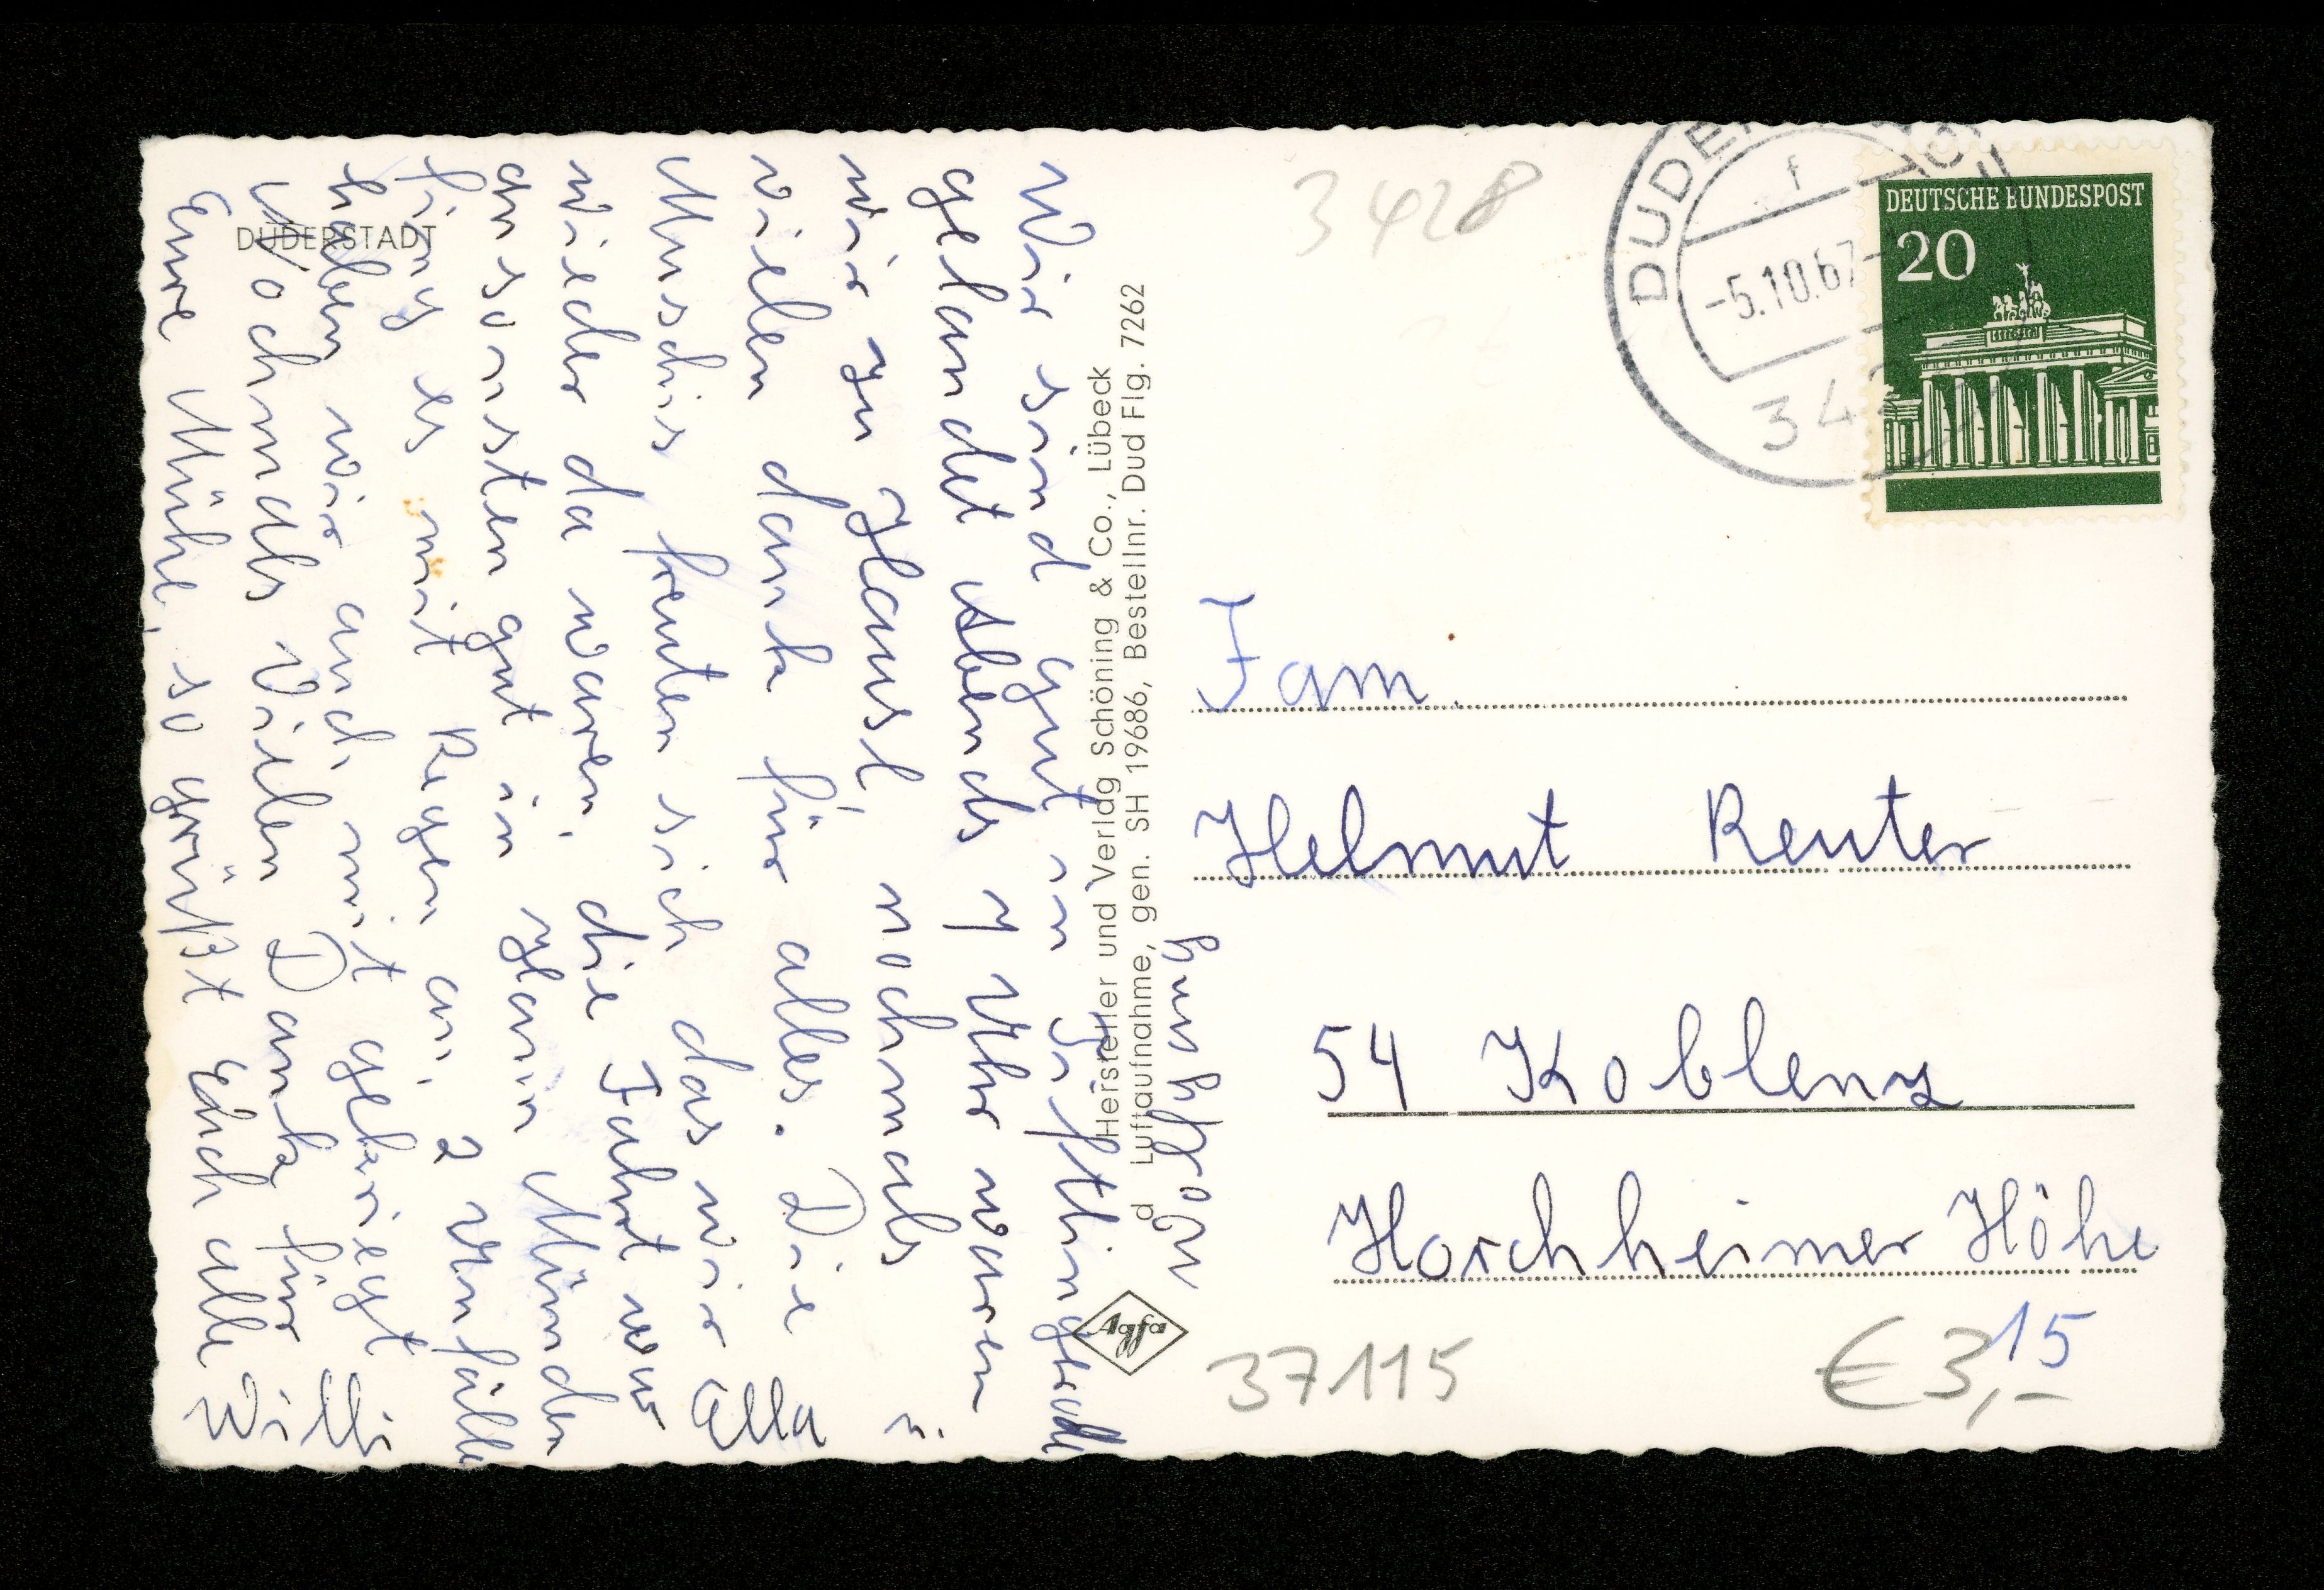 DUDERSTADT
Wir sind gut in Giftlingerode
gelandet Abends 7 Uhr waren
wir zu Hause, nochmals
vielen dank für alles. Die
Muschis freuten sich das wir
wieder da waren, die Fahrt war
ansonsten gut in Münden
fing es mit Regen an, 2 Unfälle
haben wir auch mit gekriegt
Nochmals Vielen Dank für
Eure Mühe, so grüßt Euch alle
Willi
u. Ella
Wolfgang
Hersteller und Verlag Schöning & Co., Lübeck
d Luftaufnahme, gen. SH 19686, Bestellnr. Dud Flg. 7262
Agfa
3428
DUDERSTADT
f
-5.10.67-
342
DEUTSCHE BUNDESPOST
20
Fam.
Helmut Reuter
54 Koblenz
Horchheimer Höhe
15
37115
€ 3,-